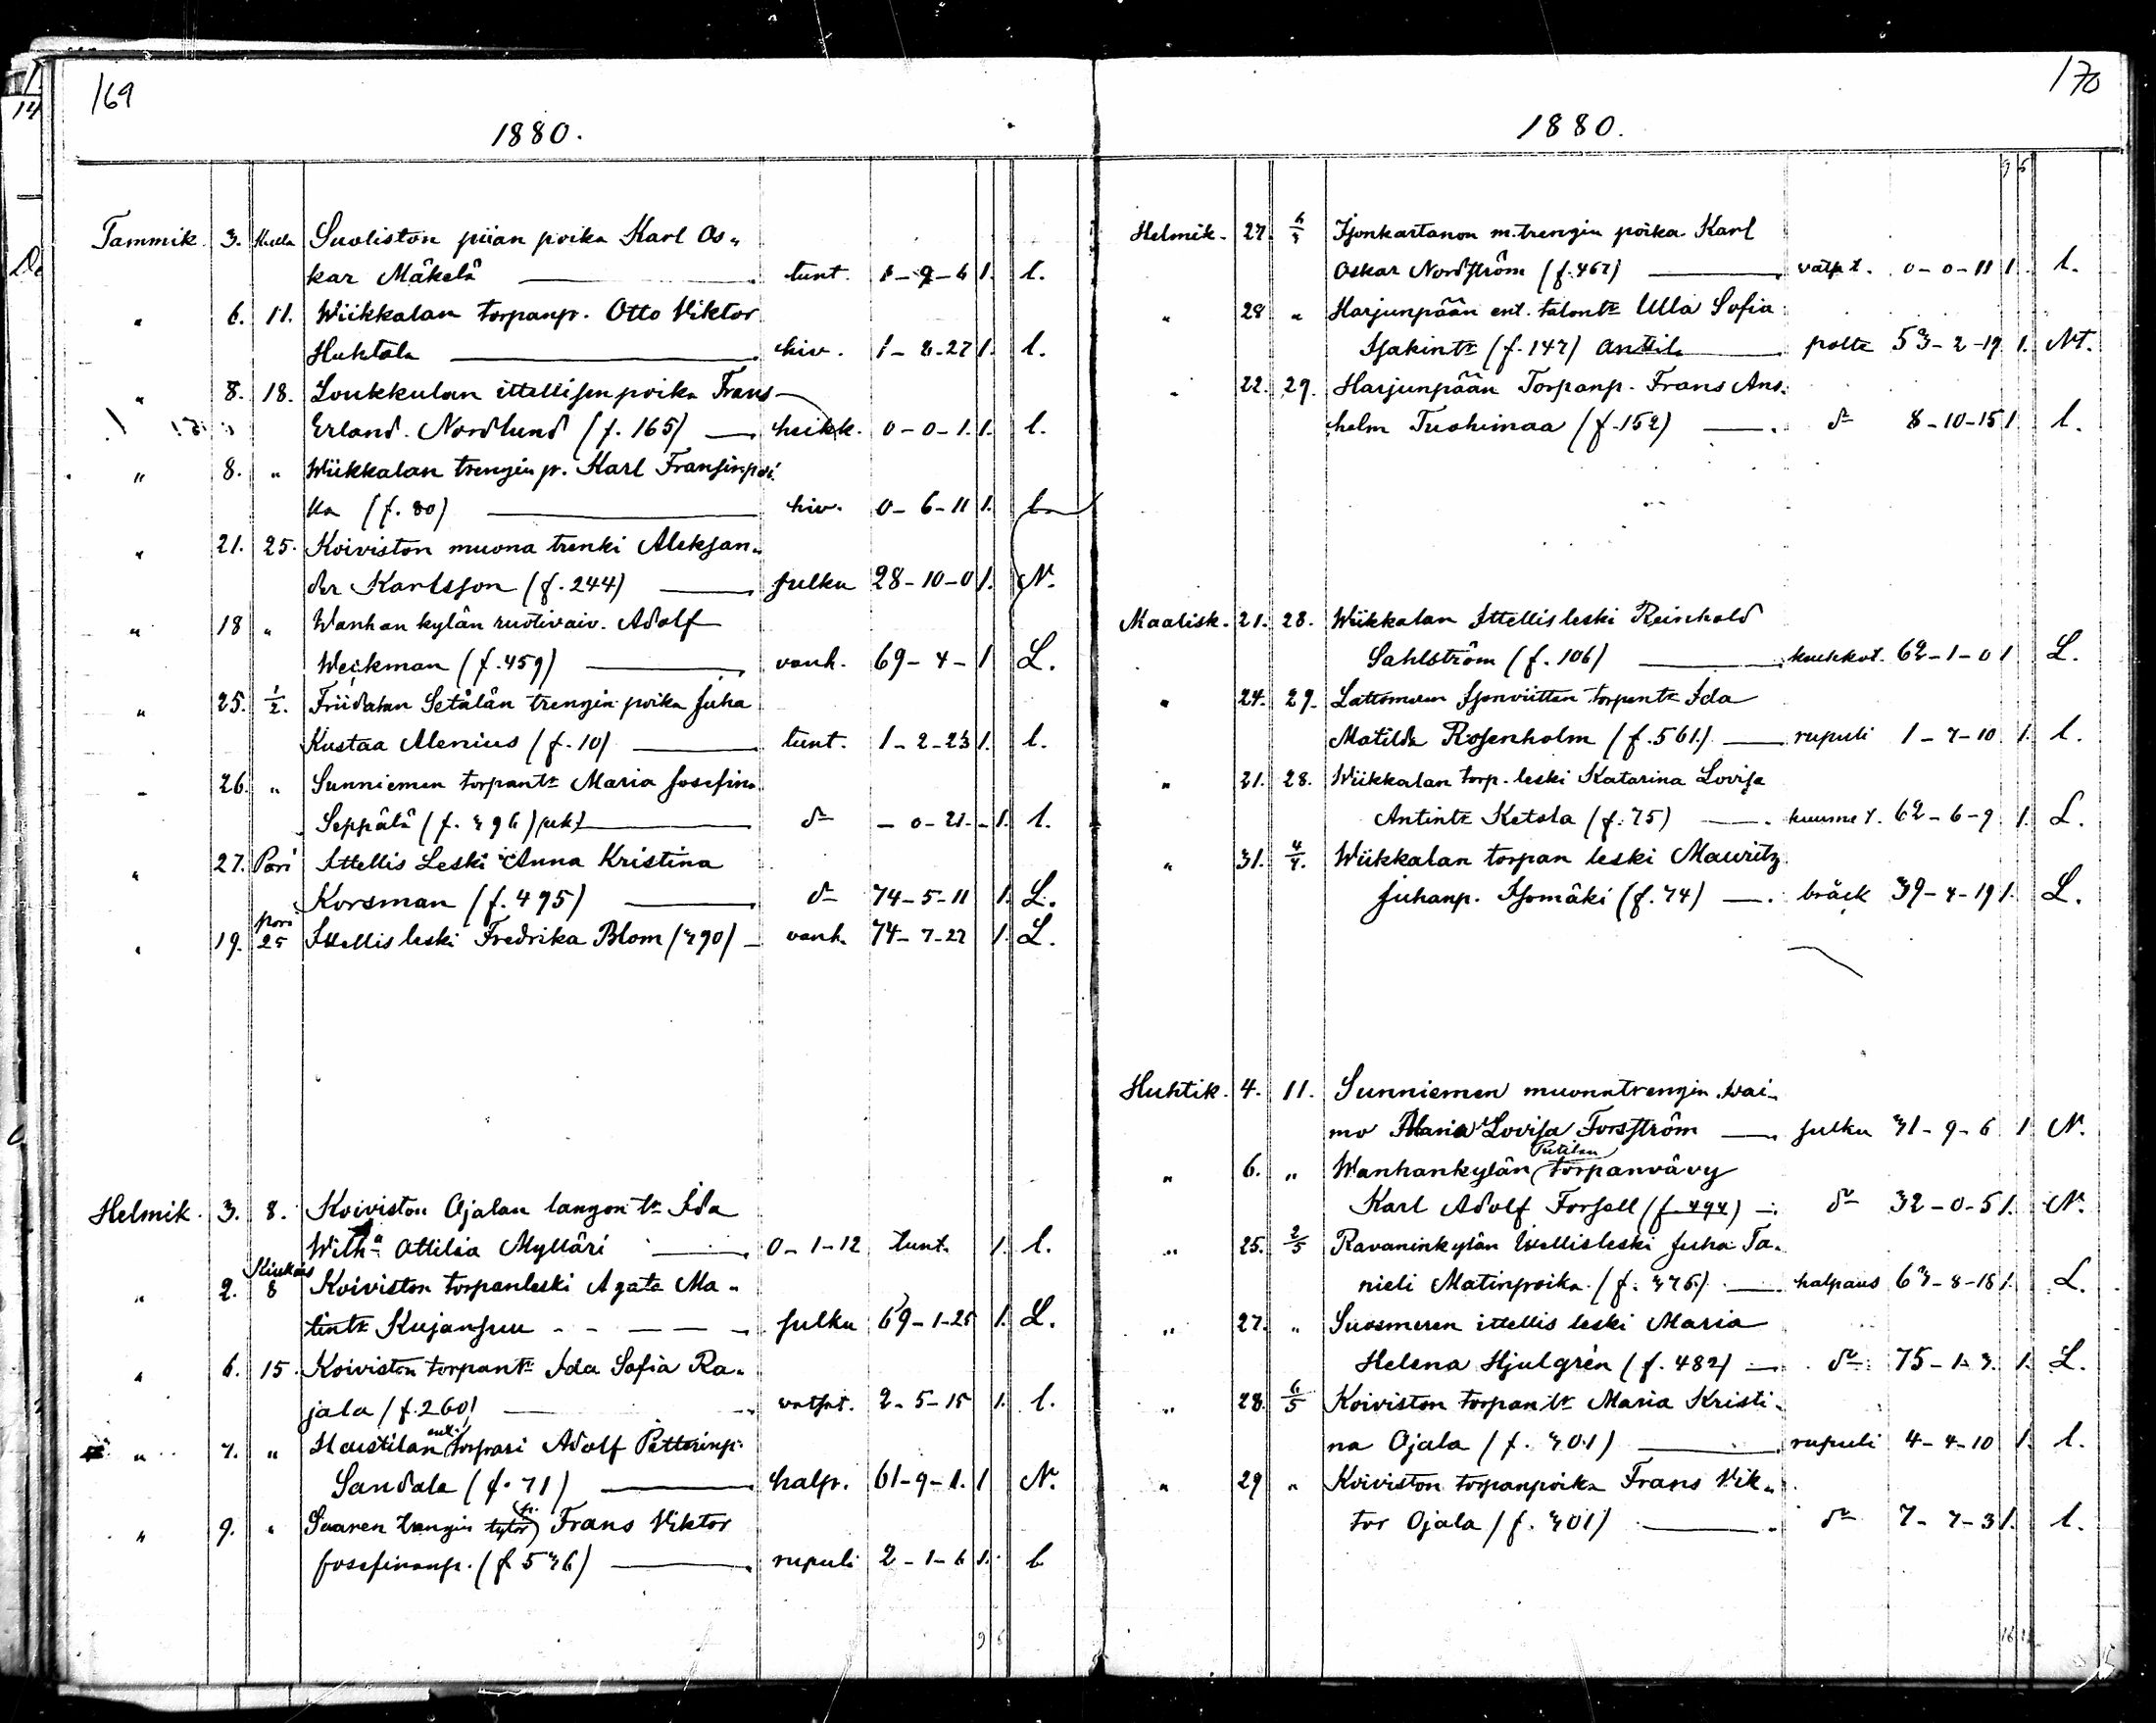 169
1880.
Tammik. 3. Kulla Suoliston piian poika Karl Os„
kar Mäkelä — tunt. 1-9-6 1. l.
„ 6. 11. Wiikkalan torpanp. Otto Viktor
Huhtala — hiv. 1-8-27 1. l.
„ 8. 18. Loukkulan ittellisen poika Frans
Erland. Nordlund (f. 165) — heikk. 0-0-1. 1. l.
„ 8. „ Wiikkalan trengin p. Karl Fransinpoi
ka (f. 80) — hiv. 0-6-11 1. l.
„ 21. 25. Koiviston muona trenki Aleksan„
der Karlsson (f. 244) — julku 28-10-0 1. N.
„ 18 „ Wanhan kylän ruotivaiv. Adolf
Weckman (f. 459) — vanh. 69-4- 1 L.
„ 25. 1/2. Friidalan Setälän trengin poika Juha
Kustaa Alenius (f. 10) — tunt. 1-2-23 1. l.
„ 26. „ Sunniemen torpantr Maria Josefina
Seppälä (f. 396) — do -0-21- 1. l.
„ 27. Pori Ittellis Leski Anna Kristina
Korsman (f. 495) — do 74-5-11 1. L.
„ 19. pori 25 Ittellis leski Fredrika Blom (390) — vanh. 74-7-27 1. L.
Helmik. 3. 8. Koiviston Ojalan langon tr Ida
Wilha Attilia Mylläri — 0-1-12 tunt. 1. l.
„ 2. 8 Koiviston torpanleski Agata Ma-
tintr Kujansuu — julku 69-1-25 1. L.
„ 6. 15. Koiviston torpantr Ida Sofia Ra„
jala (f. 260) — vatsat. 2-5-15 1. l.
„ 7. „ Haistilan ent. torpari Adolf Petterinp.
Sandala (f. 71) — halp. 61-9-1. 1 N.
„ 9. „ Saaren trengin tytör p. Frans Viktor
Josefinanp. (f 536) — rupuli 2-1-6 1. l
9 6
170
1880.
9 6
Helmik. 27. Isonkartanon m. trengin poika Karl
Oskar Nordström (f. 467) — vatst. 0-0-11 1. l.
„ 28 „ Harjunpään ent. talontr Ulla Sofia
Isakintr (f. 147) Anttila — poltt 53-2-19 1. Nt.
„ 22. 29. Harjunpään Torpanp. Frans Ans„
helm Tuohimaa (f. 152) — do 8-10-15 1. l.
Maalisk. 21. 28. Wiikkalan Ittellis leski Reinhold
Sahlström (f. 106) — keuhkot. 62-1-0 1 L.
„ 24. 29. Lattomeren Isonviittan torpantr Ida
Matilda Rosenholm (f. 561.) — rupuli 1-7-10 1. l.
„ 21. 28. Wiikkalan torp. leski Katarina Lovisa
Antintr Ketola (f. 75) — kuumet. 62-6-9 1. L.
„ 31. 4/4. Wiikkalan torpan leski Mauritz
Juhanp. Isomäki (f. 74) — bräck 39-4-19 1. L.
Huhtik. 4. 11. Sunniemen muonatrengin wai-
mo Maria Lovisa Forsström — julku 31-9-6 1 N.
„ 6. „ Wanhankylän torpanvävy
Karl Adolf Forsell (f. 494) — do 32-0-5 1. N.
„ 25. 2/5 Ravaninkylän Ittellisleski Juha Ta„
nieli Matinpoika (f. 376.) — halpaus 63-8-18 1. L.
„ 27. „ Suosmeren ittellis leski Maria
Helena Hjulgrén (f. 482) — do 75-1-3. 1. L.
„ 28. 6/5 Koiviston torpan tr Maria Kristi„
na Ojala (f. 301) — rupuli 4-4-10 1. l.
„ 29 „ Koiviston torpanpoika Frans Vik„
tor Ojala (f. 301) — do 7-7-3 1. l.